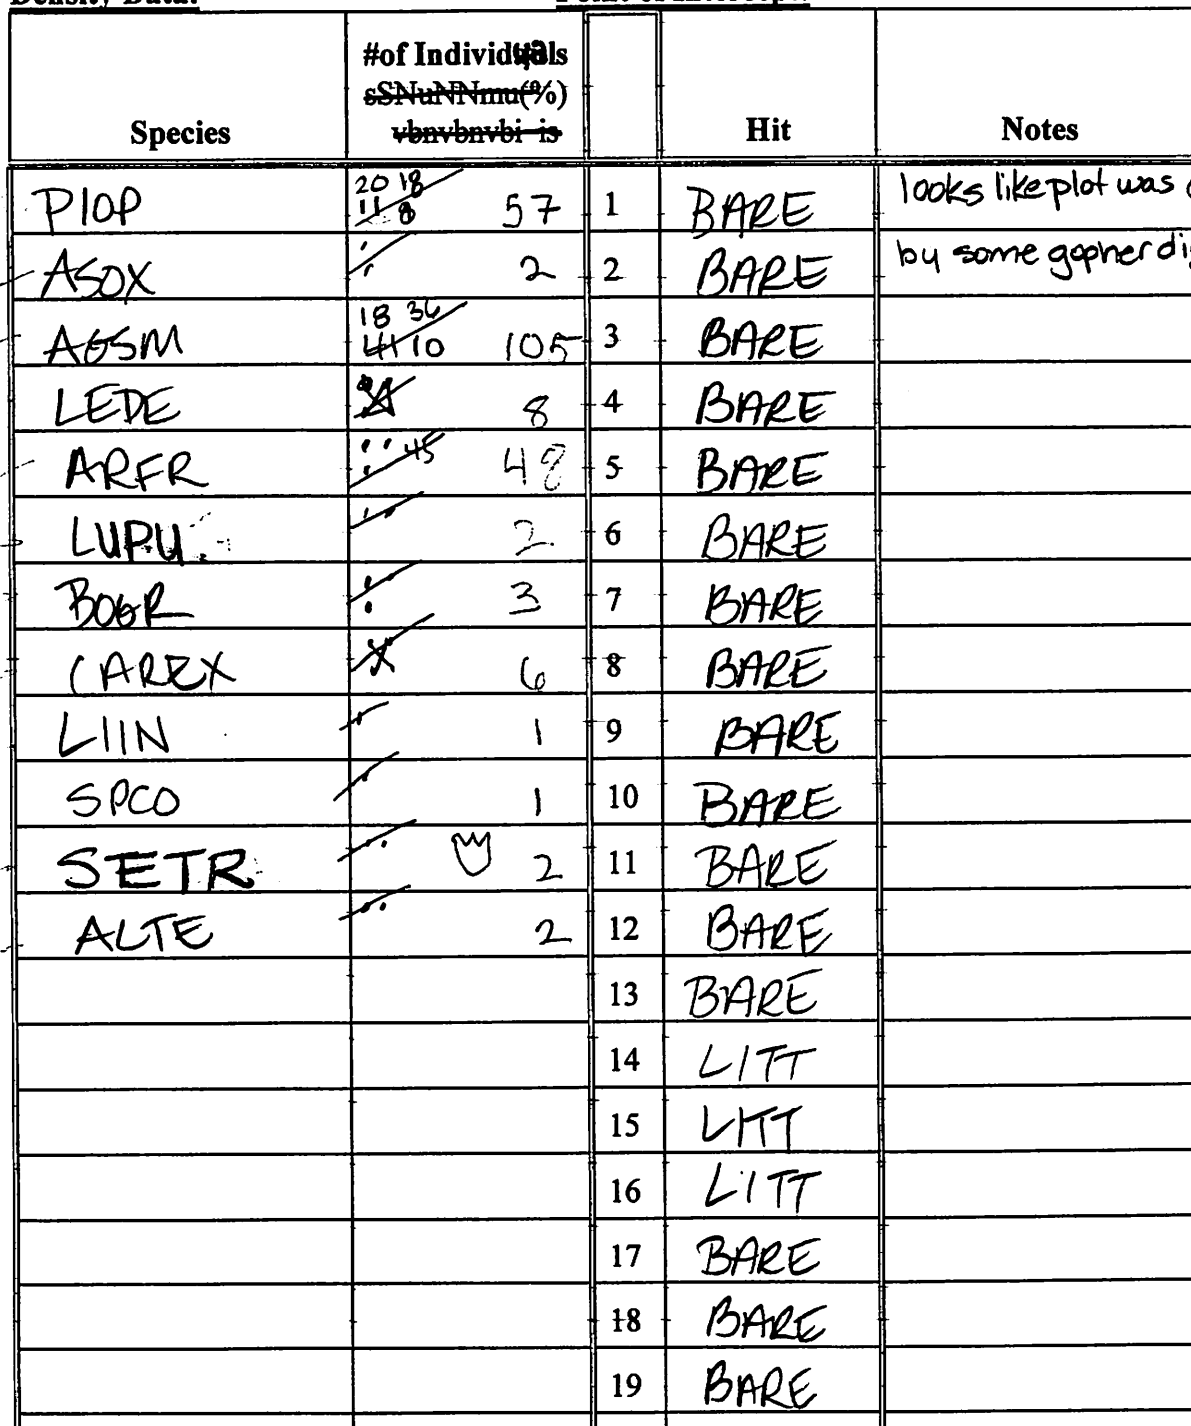 Density Data:
#of Individuals
sSNuNNmu(%)
vbnvbnvbi is
Species Hit Notes
20 18
PIOP 11 8 57 1 BARE looks like plot was
ASOX 2 2 BARE by some gopher di
18 36
AGSM 41 10 105 3 BARE
LEDE 8 4 BARE
ARFR 45 48 5 BARE
LUPU 2 6 BARE
BOGR 3 7 BARE
CAREX 6 8 BARE
LIIN 1 9 BARE
SPCO 1 10 BARE
SETR 2 11 BARE
ALTE 2 12 BARE
13 BARE
14 LITT
15 LITT
16 LITT
17 BARE
18 BARE
19 BARE